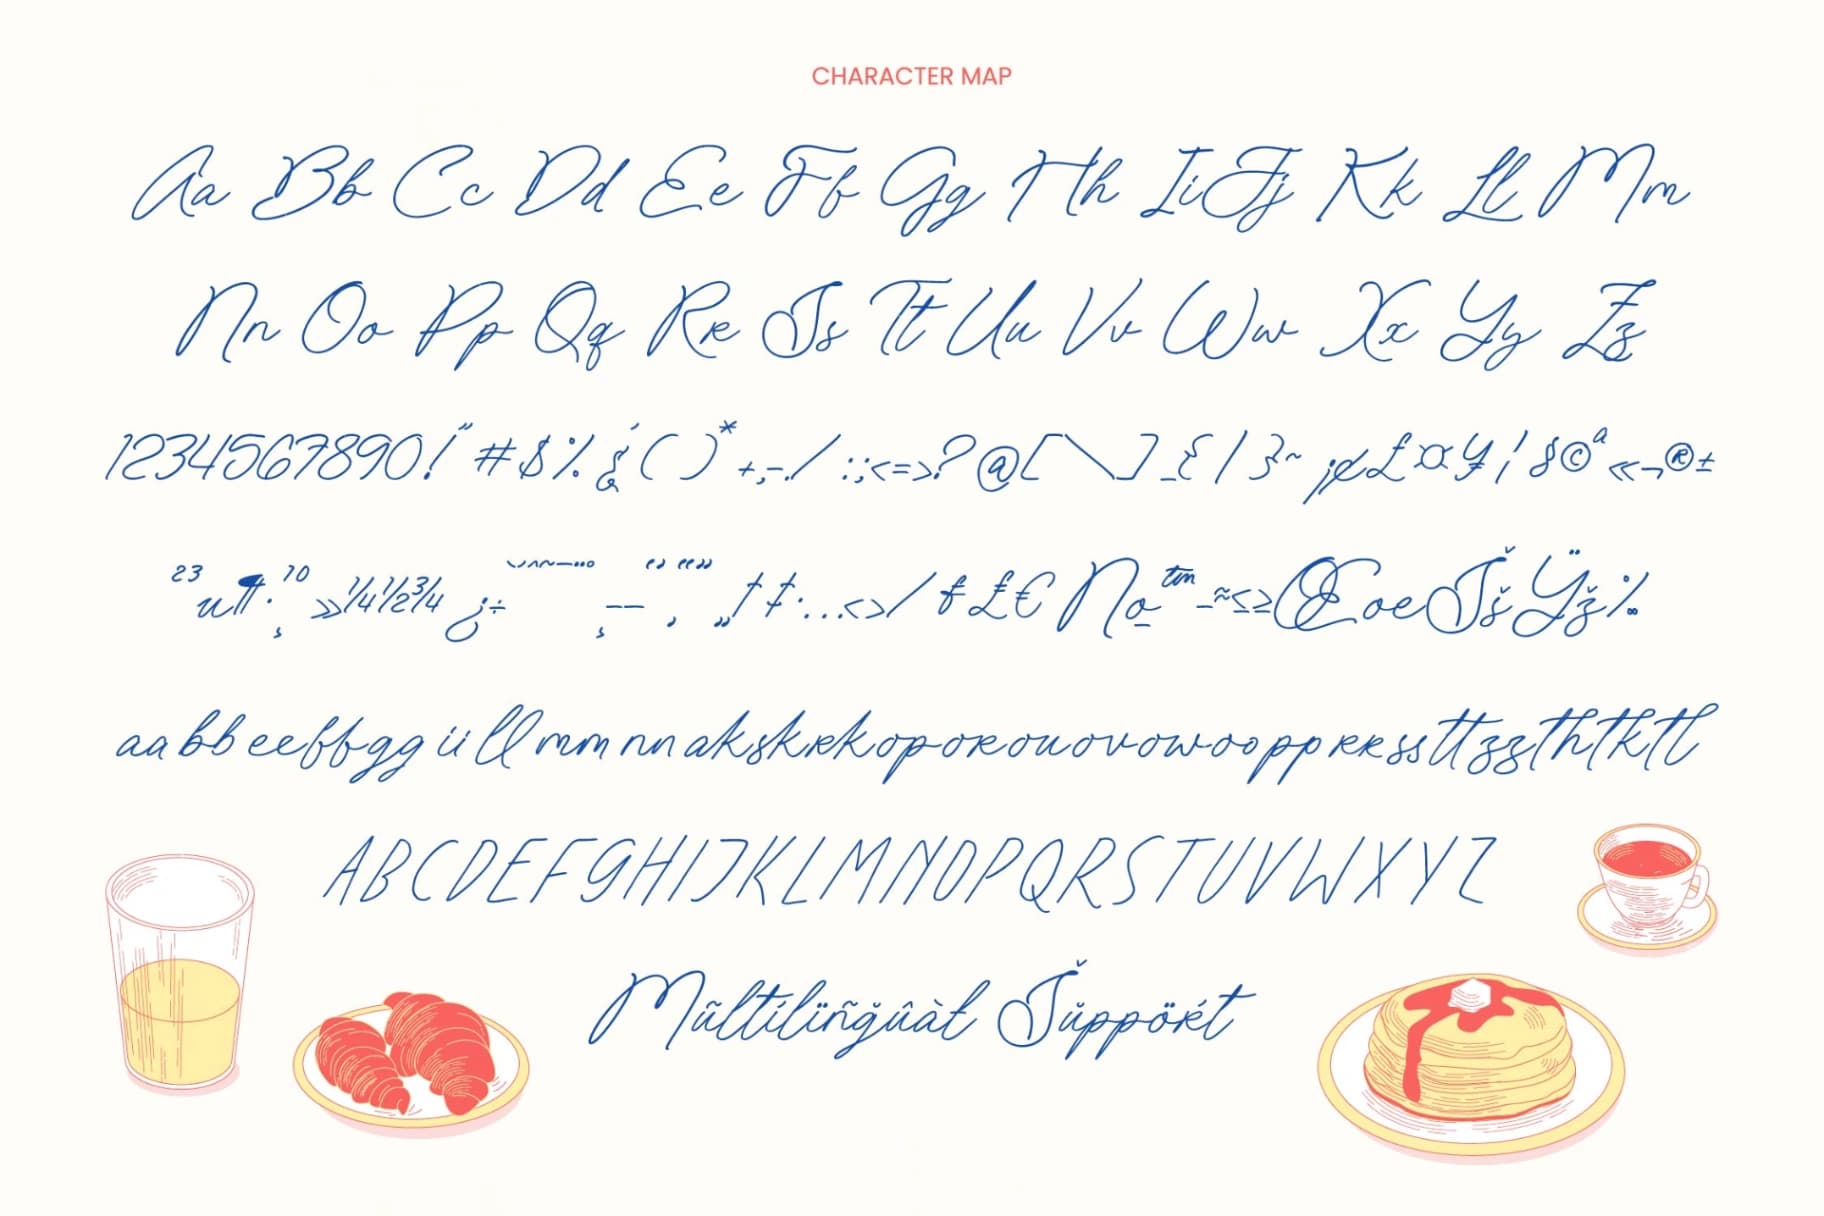 CHARACTER MAP
Aa Bb Cc Dd Ee Ff Gg Hh Ii Jj Kk Ll Mm
Nn Oo Pp Qq Rr Ss Tt Uu Vv Ww Xx Yy Zz
1234567890!" #$%&'()*+,-./:;<=>?@[\]_{|}~¡¢£¤¥¦§©ª«¬®±
²³µ¶·¸¹º»¼½¾¿÷ˇ˘ˆ˜¯˙¨˚¸–—‘’‚“”„†‡•…‹›⁄₣₤€№™−≈≤≥ŒœŠšŸž‰
aa bb ee ff gg ii ll mm nn ak sk rk op or ou ov ow oo pp rr ss tt zz th tk tl
ABCDEFGHIJKLMNOPQRSTUVWXYZ
Mũltílïñğûàł Šŭppöŕt